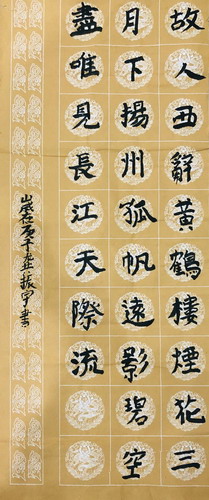 故人西辭黃鶴樓煙花三
月下揚州孤帆遠影碧空
盡唯見長江天際流
歲在庚子